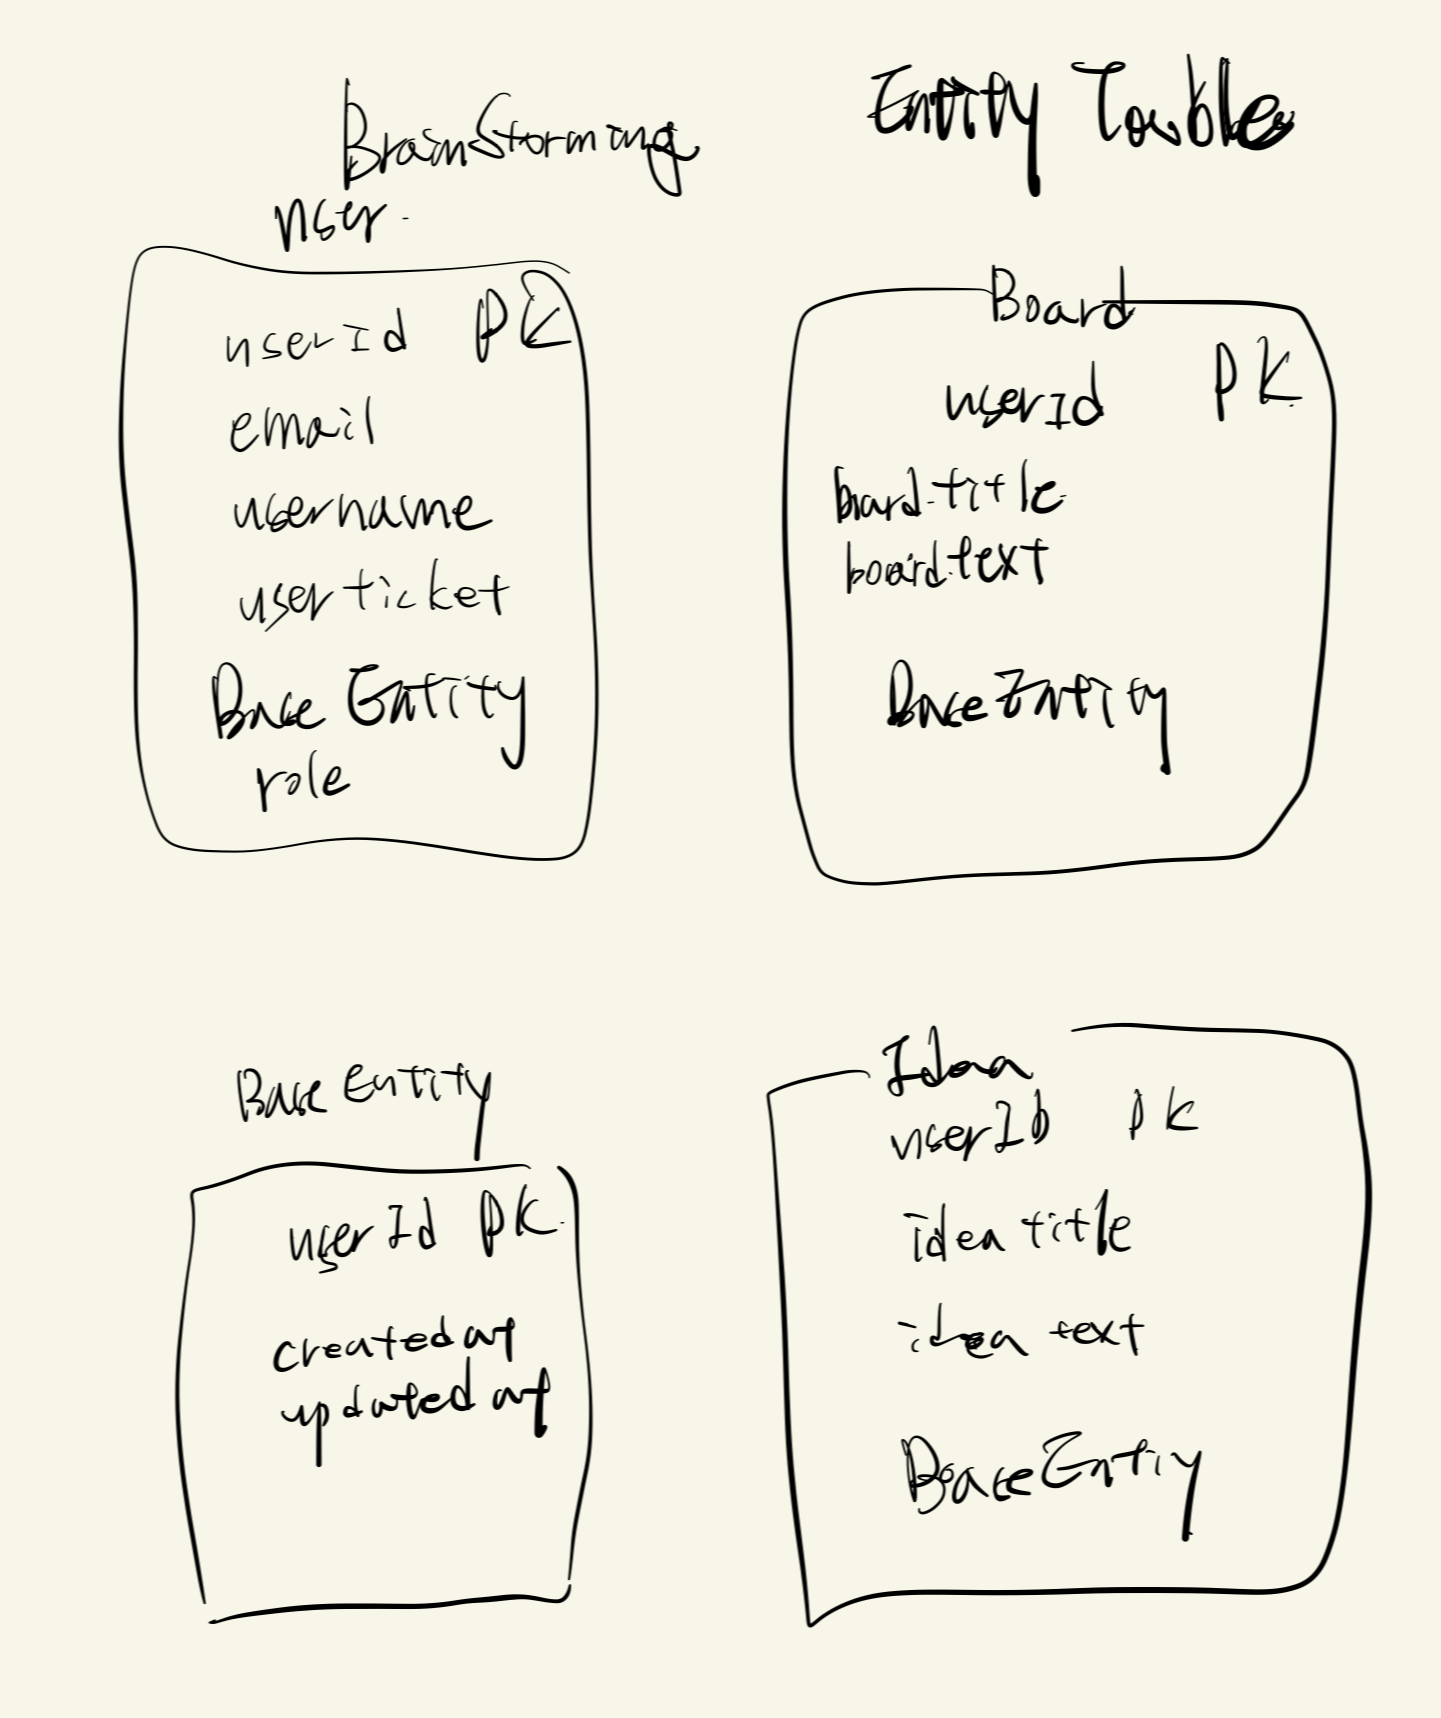 BrainStorming
Entity Tables
user
userId PK
email
username
userticket
Base Entity
role
Board
userId PK
board title
board text
Base Entity
Base Entity
userId PK
created at
updated at
Idea
userID PK
idea title
idea text
Base Entiy